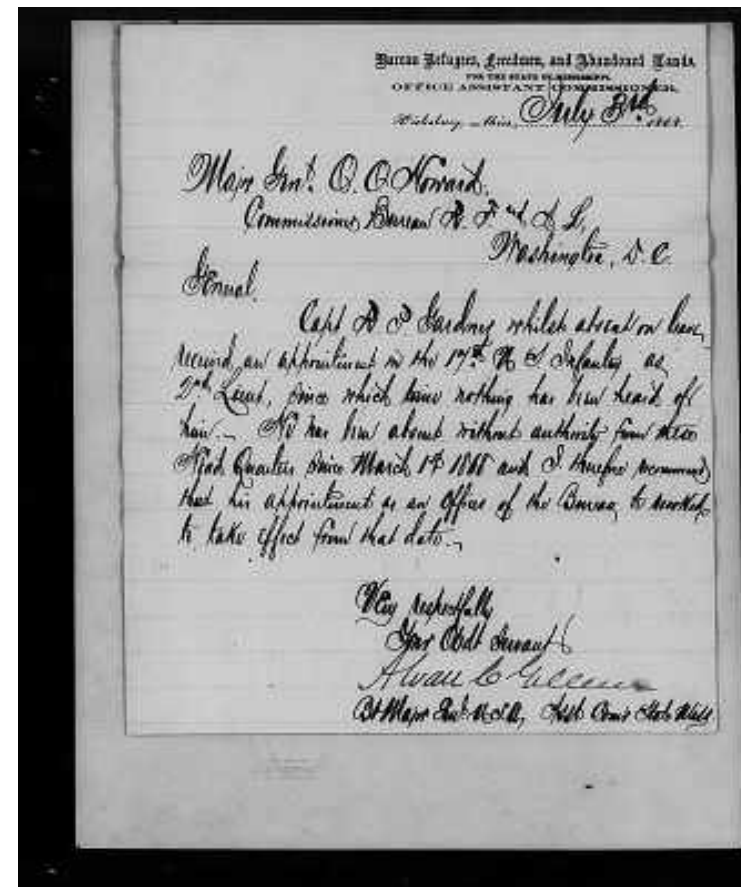 Bureau Refugees, Freedmen, and Abandoned Lands,
FOR THE STATE OF MISSISSIPPI,
OFFICE ASSISTANT COMMISSIONER,
Vicksburg, Miss, July 3rd, 1868
Major Genl. O. O. Howard.
Commissioner Bureau R. F and A L,
Washington, D. C.
General.
Capt R P Gardner whilst absent on leave,
received an appointment in the 17th U S Infantry as
2nd Lieut, since which time nothing has been heard of
him. He has been absent without authority from these
Head Quarters since March 1st 1868 and I therefore recommend
that his appointment as an Officer of the Bureau, be revoked
to take effect from that date.
Very respectfully
Your Obdt Servant
Alvan C Gillem
Bt Major Genl. U.S.A, Asst Com'r State Miss